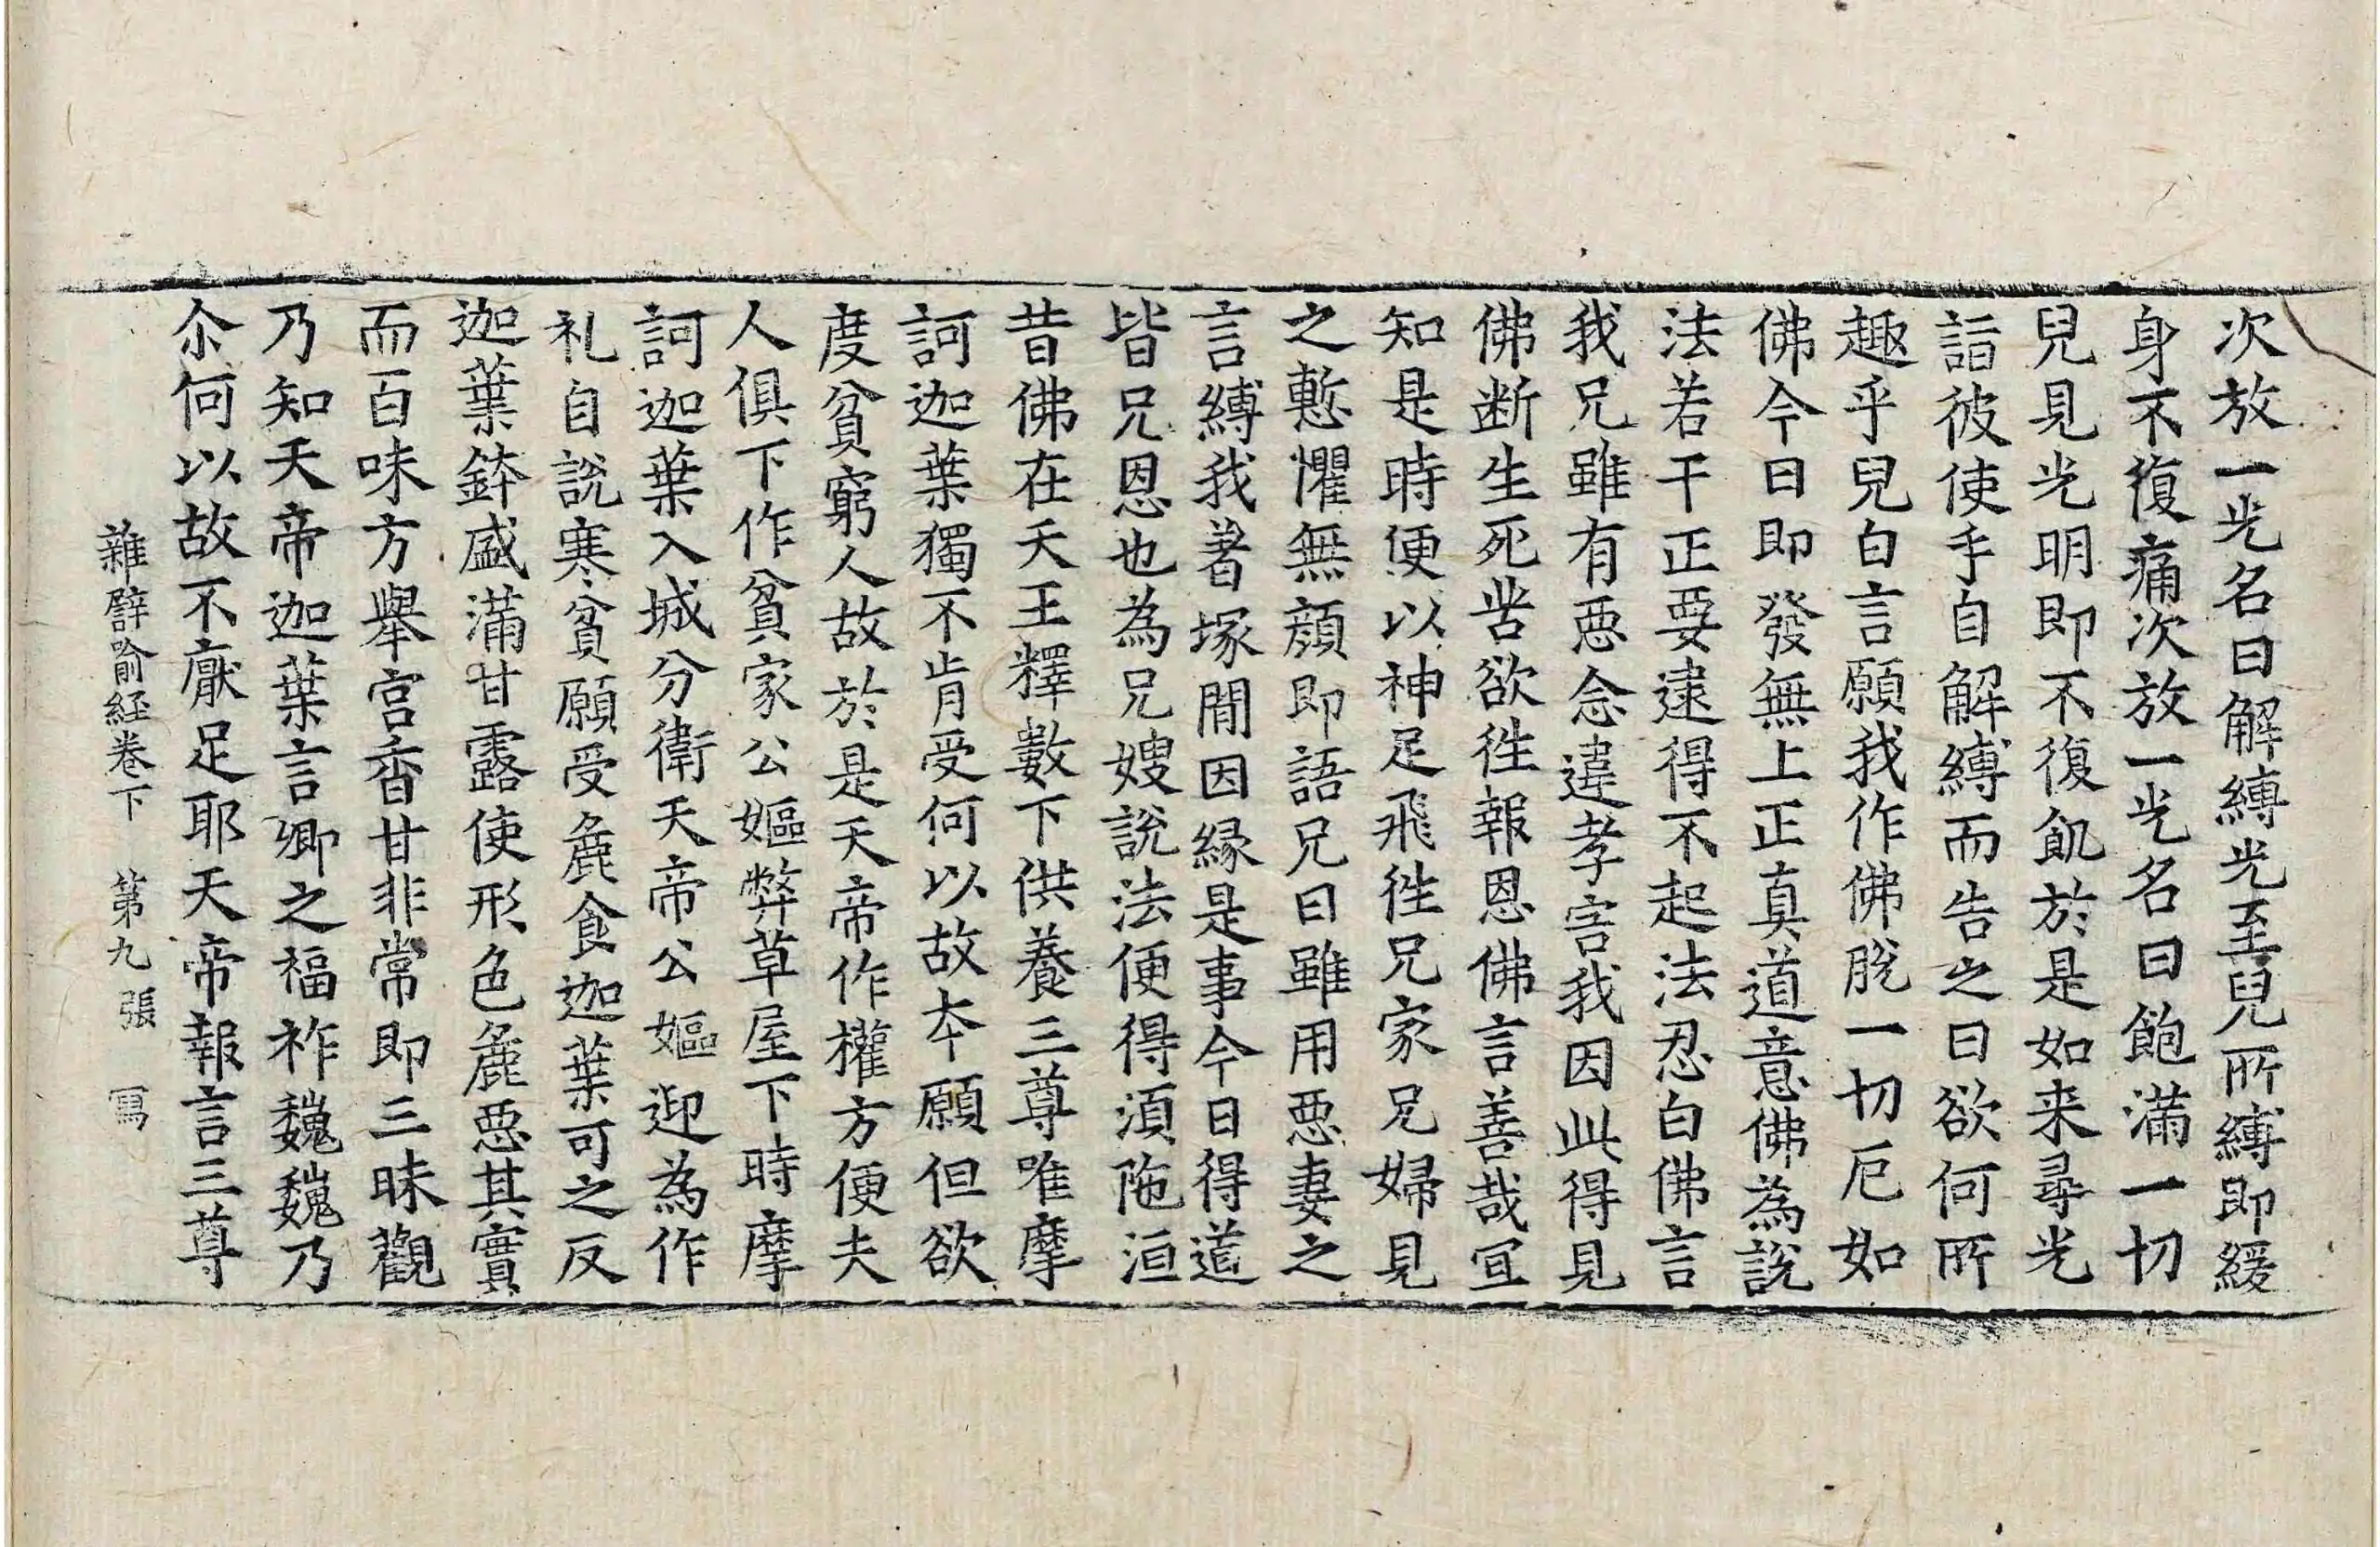 次放一光名曰解縛光至兒所縛即緩
身不復痛次放一光名曰飽滿一切
兒見光明即不復飢於是如来尋光
詣彼使手自解縛而告之曰欲何所
趣乎兒白言願我作佛脫一切厄如
佛今日即發無上正真道意佛為說
法若干正要逮得不起法忍白佛言
我兄雖有惡念違孝害我因此得見
佛断生死苦欲徃報恩佛言善哉宜
知是時便以神足飛徃兄家兄婦見
之慙懼無顔即語兄曰雖用惡妻之
言縛我著塚間因緣是事今日得道
皆兄恩也為兄嫂說法便得湏陁洹
昔佛在天王釋數下供養三尊唯摩
訶迦葉獨不肯受何以故夲願但欲
度貧窮人故於是天帝作權方便夫
人俱下作貧家公嫗弊草屋下時摩
訶迦葉入城分衛天帝公嫗迎為作
礼自說寒貧願受麁食迦葉可之反
迦葉鉢盛滿甘露使形色麁惡其實
而百味方舉宮香甘非常即三昧觀
乃知天帝迦葉言卿之福祚巍巍乃
尒何以故不猒足耶天帝報言三尊
雜譬喻経卷下 第九張 寫